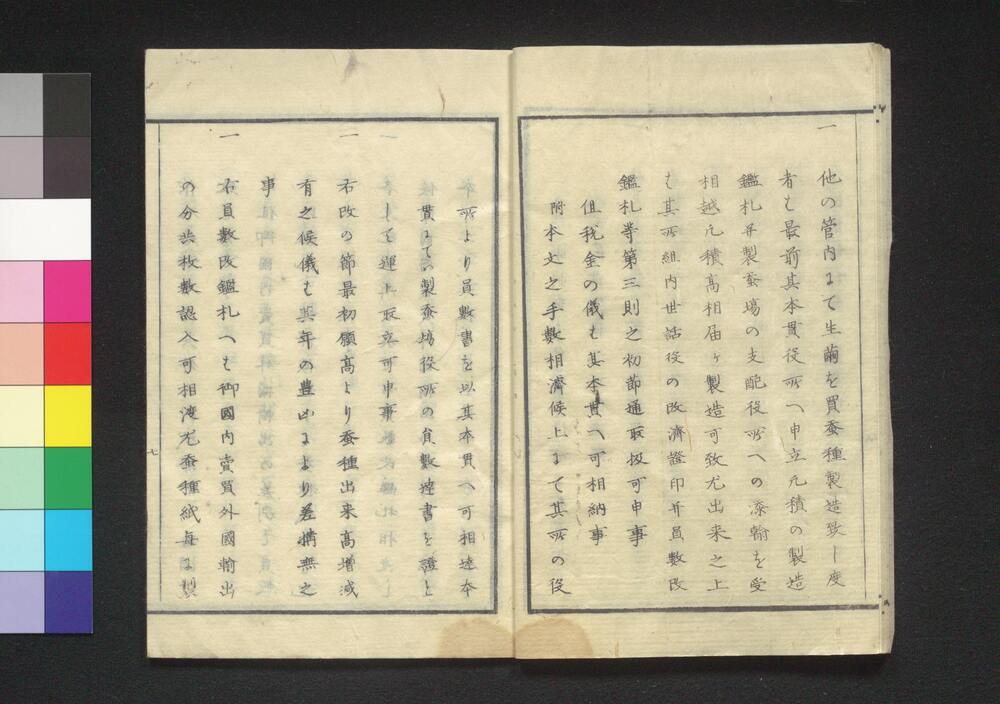 一
他の管内ニて生繭を買蚕種製造致し度
者も最前其本貫役所へ申立凡積の製造
鑑札并製蚕場の支配役所への添翰を受
相越凡積高相届ヶ製造可致尤出来之上
も其所組内世話役の改済證印并員數改
鑑札等第三則之初節通取扱可申事
但税金の儀も其本貫へ可相納事
附本文之手數相濟候上ニて其所の役
本所より員數書を以其本貫へ可相達本
貫ニてハ製蚕場役所の員數達書を證と
して運上取立可申事
一
右改の節最初願高より蚕種出来高増減
有之候儀も其年の豊凶ニより差構無之
事
一
右員數改鑑札へも御國内賣買外國輸出
の分共枚數認入可相渡尤蚕種紙毎ニ製
七